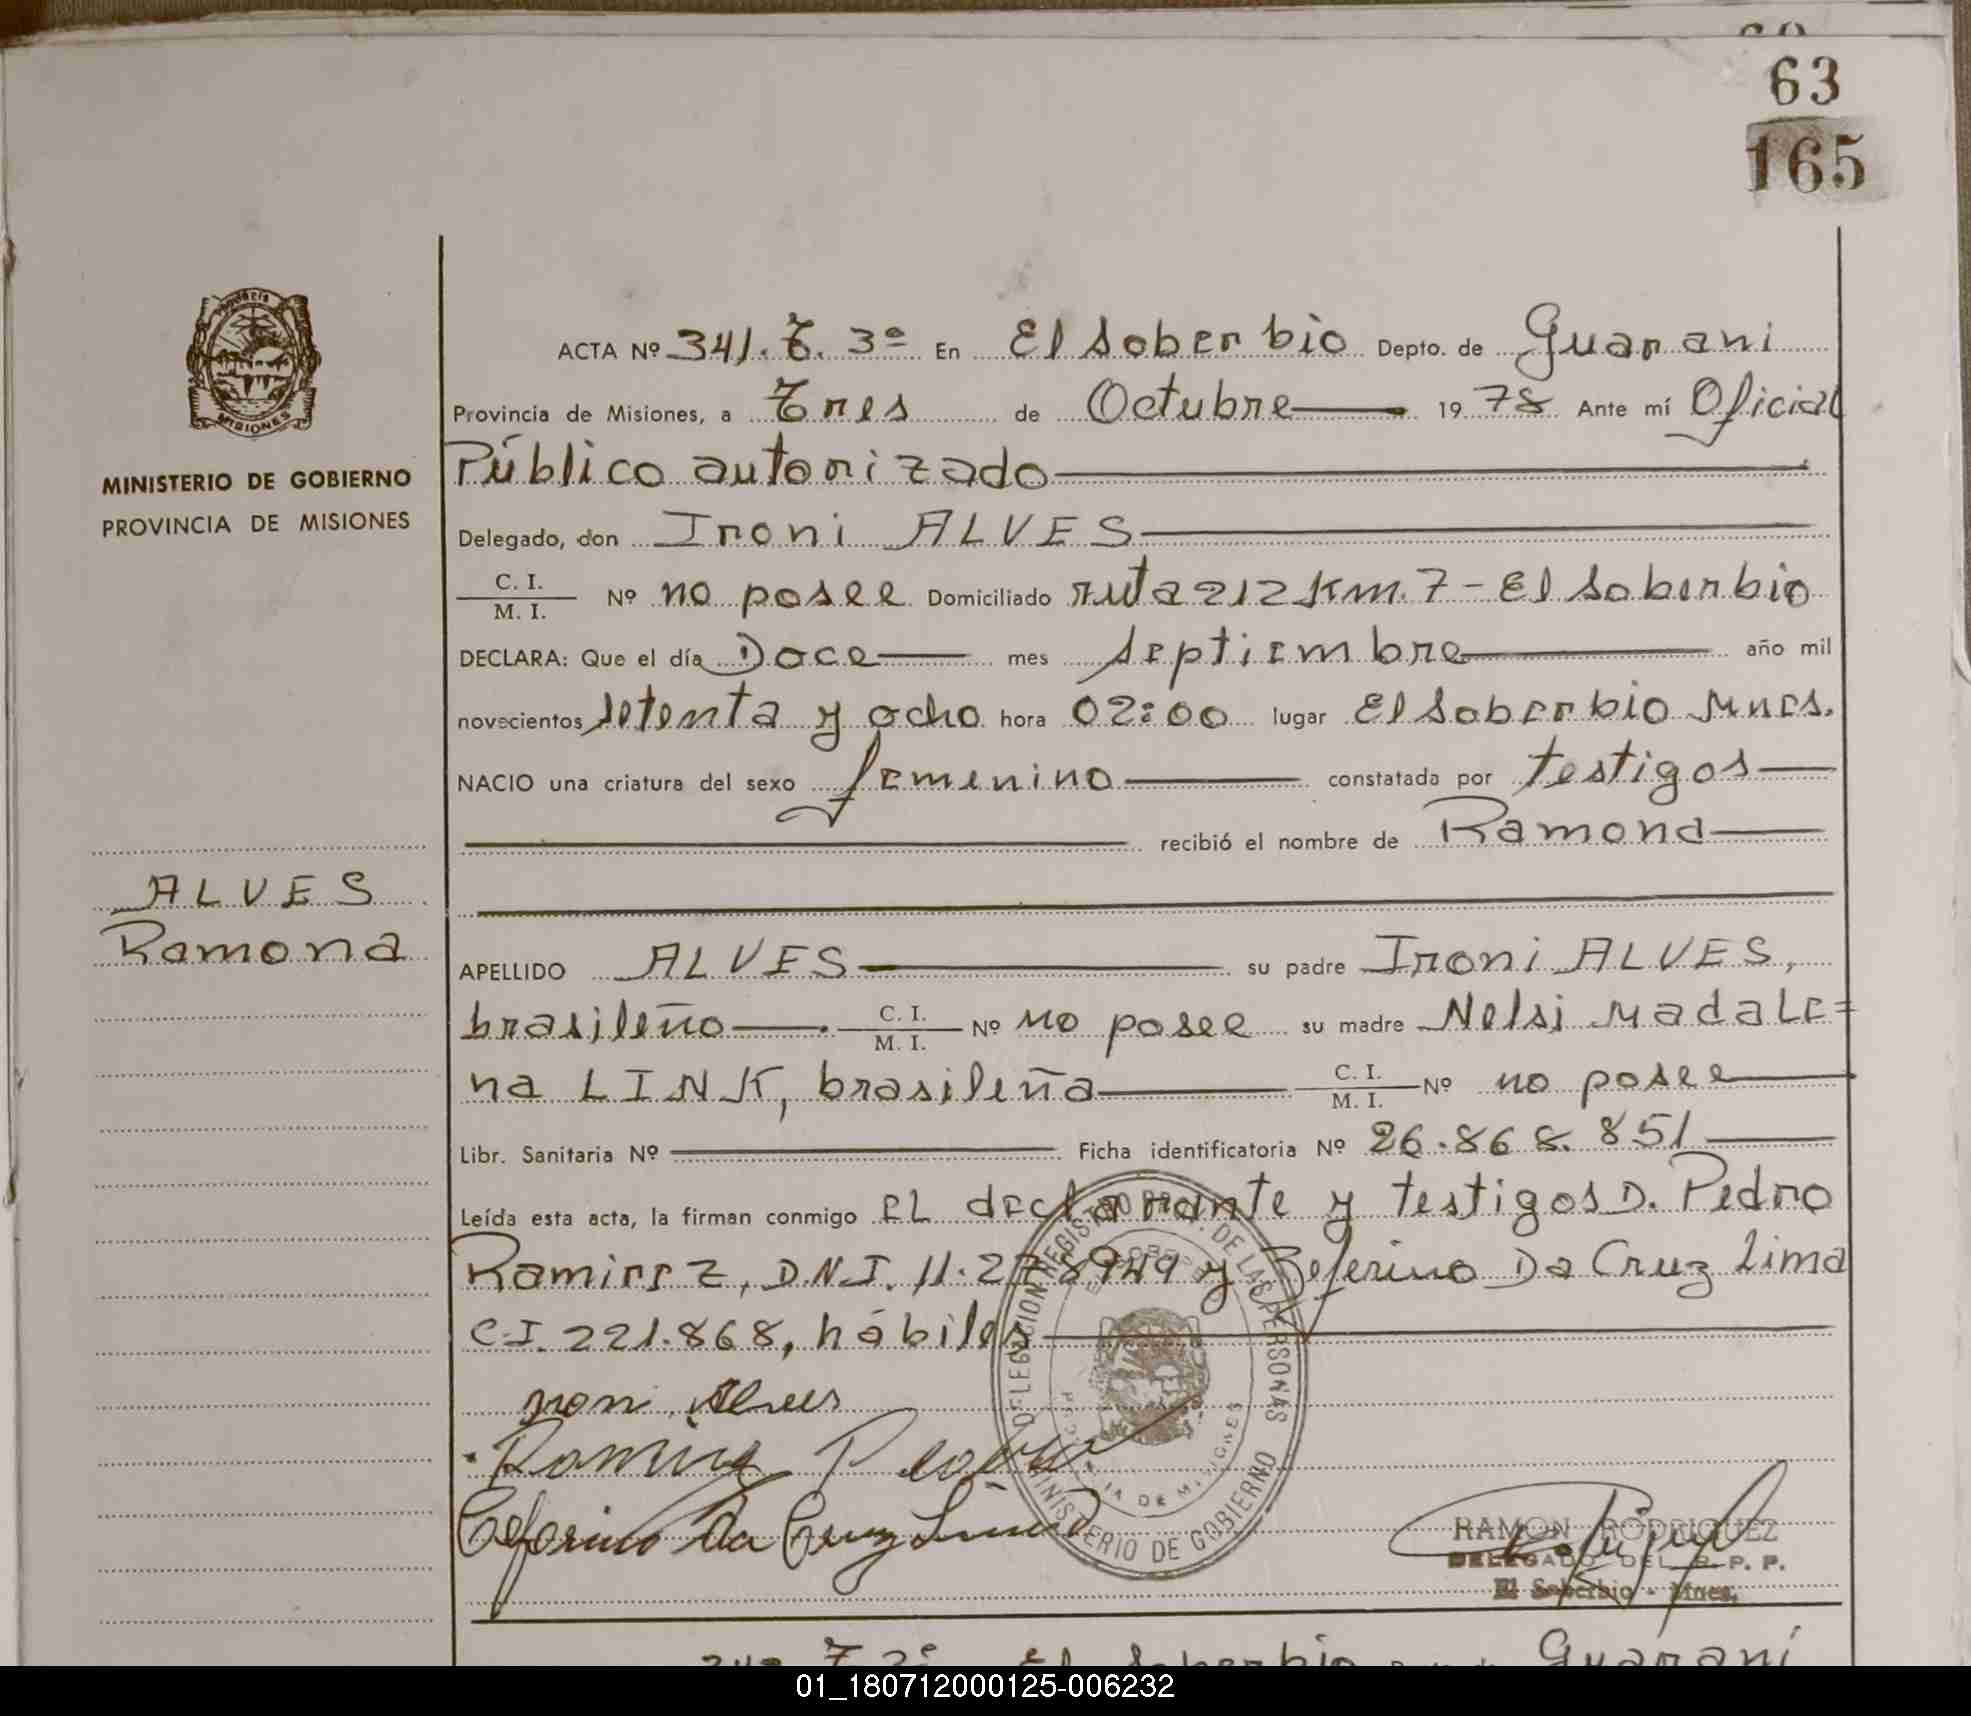 63
165
MINISTERIO DE GOBIERNO
PROVINCIA DE MISIONES
ALVES
Ramona
ACTA Nº 341. T. 3º En El Soberbio Depto. de Guarani
Provincia de Misiones, a Tres de Octubre 19 78 Ante mí Oficial
Público autorizado
Delegado, don Ironi ALVES
C. I. / M. I. Nº no posee Domiciliado ruta 212 Km. 7 - El Soberbio
DECLARA: Que el día Doce mes septiembre año mil
novecientos setenta y ocho hora 02:00 lugar El Soberbio Mnes.
NACIO una criatura del sexo femenino constatada por testigos
recibió el nombre de Ramona
APELLIDO ALVES su padre Ironi ALVES,
brasileño. C. I. / M. I. Nº no posee su madre Nelsi Madale=
na LINK, brasileña C. I. / M. I. Nº no posee
Libr. Sanitaria Nº Ficha identificatoria Nº 26.868.851
Leída esta acta, la firman conmigo el declarante y testigos D. Pedro
Ramirez, D.N.I. 11.278949 y Zeferino Da Cruz Lima
C.I. 221.868, hábiles
Ironi Alves
Ramirez Pedro
Ceferino da Cruz Lima
DELEGACION REGISTRO DE LAS PERSONAS
MINISTERIO DE GOBIERNO
PROVINCIA DE MISIONES
RAMON RODRIGUEZ
DELEGADO DEL R. P. P.
El Soberbio - Mnes.
El Soberbio Guarani
01_180712000125-006232